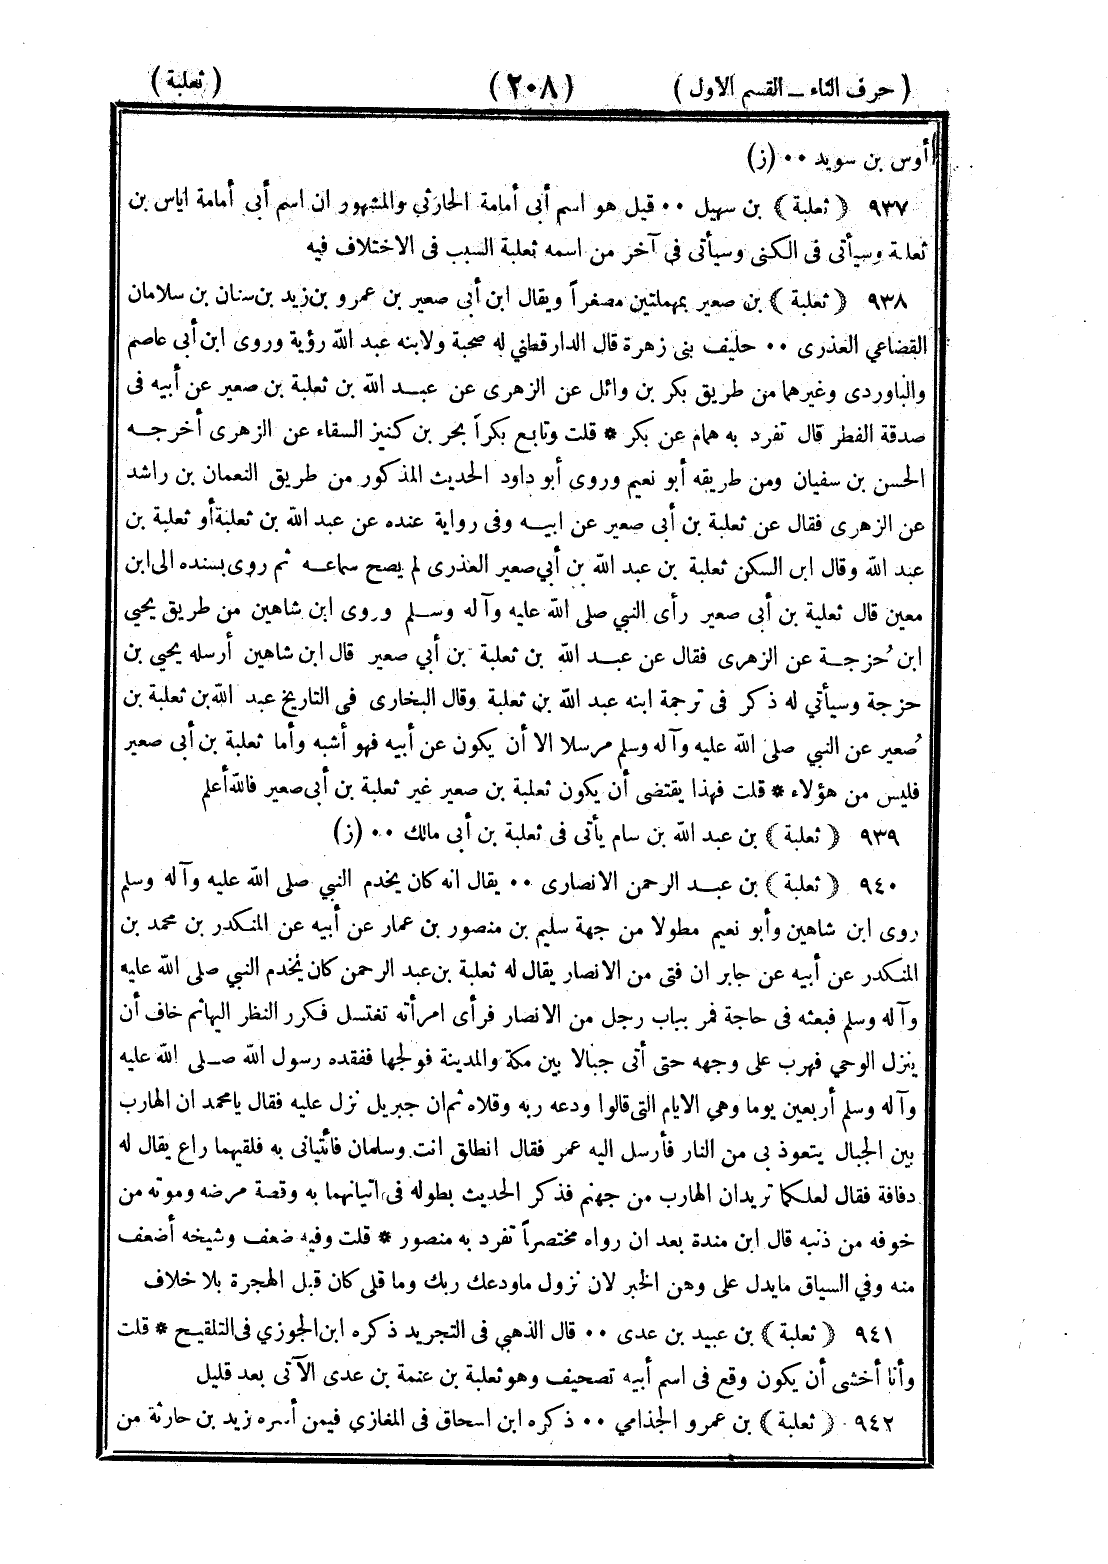 ( حرف الثاء ــ القسم الاول ) (٢٠٨) ( ثعلبة )
أوس بن سويد ٠٠ (ز)
٩٣٧ ﴿ ثعلبة ﴾ بن سهيل ٠٠ قيل هو اسم أبى أمامة الحارثي والمشهور ان اسم أبى أمامة اياس بن
ثعلبة وسيأتى فى الكنى وسيأتى فى آخر من اسمه ثعلبة السبب فى الاختلاف فيه
٩٣٨ ﴿ ثعلبة ﴾ بن صعير بمهملتين مصغراً ويقال ابن أبى صعير بن عمرو بن زيد بن سنان بن سلامان
القضاعي العذرى ٠٠ حليف بنى زهرة قال الدارقطني له صحبة ولابنه عبد الله رؤية وروى ابن أبى عاصم
والباوردى وغيرهما من طريق بكر بن وائل عن الزهرى عن عبد الله بن ثعلبة بن صعير عن أبيه فى
صدقة الفطر قال تفرد به همام عن بكر * قلت وتابع بكراً بحر بن كنيز السقاء عن الزهرى أخرجه
الحسن بن سفيان ومن طريقه أبو نعيم وروى أبو داود الحديث المذكور من طريق النعمان بن راشد
عن الزهرى فقال عن ثعلبة بن أبى صعير عن ابيه وفى رواية عنده عن عبد الله بن ثعلبة أو ثعلبة بن
عبد الله وقال ابن السكن ثعلبة بن عبد الله بن أبي صعير العذرى لم يصح سماعه ثم روى بسنده الى ابن
معين قال ثعلبة بن أبى صعير رأى النبي صلى الله عليه وآله وسلم وروى ابن شاهين من طريق يحيي
ابن ُحزجة عن الزهرى فقال عن عبد الله بن ثعلبة بن أبي صعير قال ابن شاهين أرسله يحيي بن
حزجة وسيأتي له ذكر فى ترجمة ابنه عبد الله بن ثعلبة وقال البخارى فى التاريخ عبد الله بن ثعلبة بن
ُصعير عن النبي صلى الله عليه وآله وسلم مرسلا الا أن يكون عن أبيه فهو أشبه وأما ثعلبة بن أبى صعير
فليس من هؤلاء * قلت فهذا يقتضى أن يكون ثعلبة بن صعير غير ثعلبة بن أبى صعير فالله أعلم
٩٣٩ ﴿ ثعلبة ﴾ بن عبد الله بن سام يأتى فى ثعلبة بن أبى مالك ٠٠ (ز)
٩٤٠ ﴿ ثعلبة ﴾ بن عبد الرحمن الانصارى ٠٠ يقال انه كان يخدم النبي صلى الله عليه وآله وسلم
روى ابن شاهين وأبو نعيم مطولا من جهة سليم بن منصور بن عمار عن أبيه عن المنكدر بن محمد بن
المنكدر عن أبيه عن جابر ان فتى من الانصار يقال له ثعلبة بن عبد الرحمن كان يخدم النبي صلى الله عليه
وآله وسلم فبعثه فى حاجة فمر بباب رجل من الانصار فرأى امرأته تغتسل فكرر النظر اليها ثم خاف أن
ينزل الوحي فهرب على وجهه حتى أتى جبالا بين مكة والمدينة فولجها ففقده رسول الله صلى الله عليه
وآله وسلم أربعين يوما وهي الايام التى قالوا ودعه ربه وقلاه ثم ان جبريل نزل عليه فقال يامحمد ان الهارب
بين الجبال يتعوذ بى من النار فأرسل اليه عمر فقال انطلق انت وسلمان فائتيانى به فلقيهما راع يقال له
دفافة فقال لعلكما تريدان الهارب من جهنم فذكر الحديث بطوله فى اتيانهما به وقصة مرضه وموته من
خوفه من ذنبه قال ابن مندة بعد ان رواه مختصراً تفرد به منصور * قلت وفيه ضعف وشيخه أضعف
منه وفي السياق مايدل على وهن الخبر لان نزول ماودعك ربك وما قلى كان قبل الهجرة بلا خلاف
٩٤١ ﴿ ثعلبة ﴾ بن عبيد بن عدى ٠٠ قال الذهبي فى التجريد ذكره ابن الجوزي فى التلقيح * قلت
وأنا أخشى أن يكون وقع فى اسم أبيه تصحيف وهو ثعلبة بن عنمة بن عدى الآتى بعد قليل
٩٤٢ ﴿ ثعلبة ﴾ بن عمرو الجذامي ٠٠ ذكره ابن اسحاق فى المغازي فيمن أسره زيد بن حارثة من